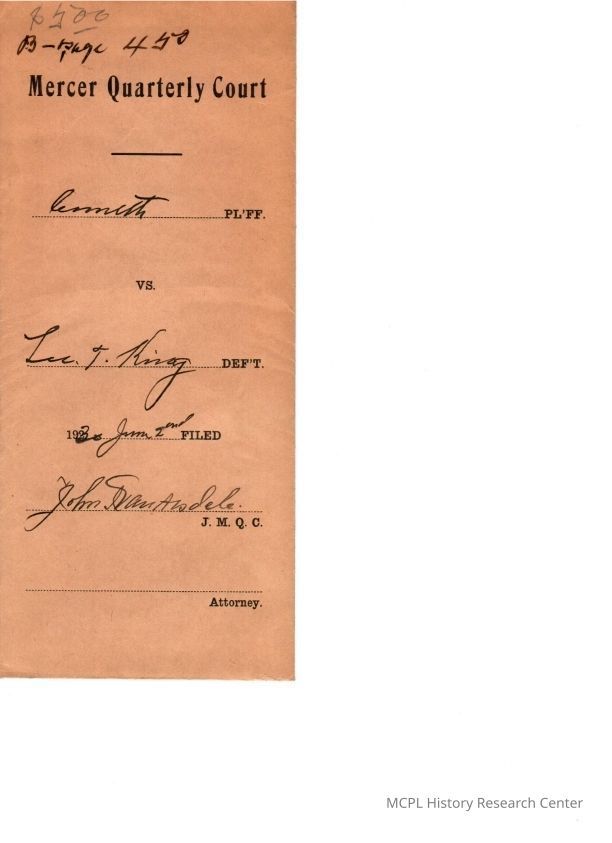 $5 00
B-page 450
Mercer Quarterly Court
Comwlth PL'FF.
VS.
Lee. T. King DEF'T.
1930 June 2nd FILED
John I Vanarsdale.
J. M. Q. C.
Attorney.
MCPL History Research Center